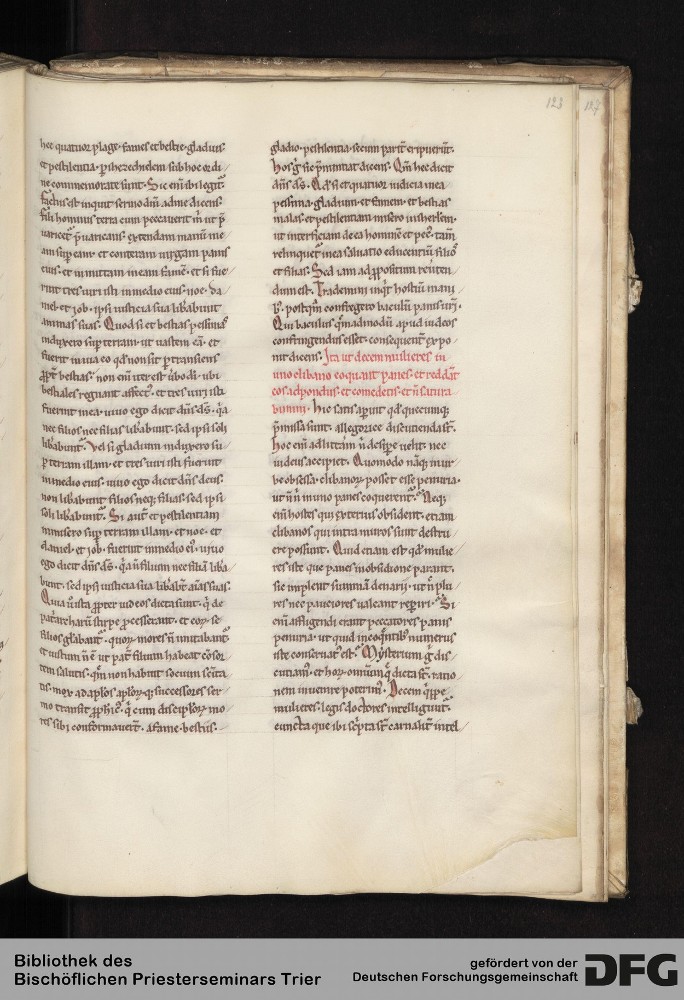 123
127
hec quatuor plage. fames et bestie. gladius
et pestilentia. p hiezechielem sub hoc ordi/
ne commemorate sunt. Sic eni ibi legit.
factus est inquit sermo dni ad me dicens.
fili hominis terra cum peccaverit m ut p
varicet pvaricans. extendam manu me/
am sup eam. et conteram virgam panis
eius. et inmittam in eam fame. et si fue/
rint tres viri isti in medio eius. noe. da/
niel. et iob. ipsi iusticia sua libabunt
animas suas. Quod si et bestias pessimas
induxero sup terram. ut vastem ea. et
fuerit invia eo qd non sit ptransiens
ppt bestias. non eni iter est ubi
bestiales regnant affect. et tres viri isti
fuerint in ea. vivo ego dicit dns ds. qa
nec filios nec filias libabunt. sed ipsi soli
libabunt. Vel si gladium induxero su/
p terram illam. et tres viri isti fuerint
in medio eius. vivo ego dicit dns deus.
non libabunt filios neq filias. sed ipsi
soli libabunt. Si aut et pestilentiam
inmisero sup terram illam. et noe. et
daniel. et iob. fuerint in medio ei. vivo
ego dicit dns ds. qa n filium nec filia liba/
bunt. sed ipsi iusticia sua libabt aias suas.
Que ista ppter iudeos dicta sunt. q de
patrarcharu stirpe pcesserant. et eor se
filios glabant. quor mores n imitabant.
et iustum n e ut pat filium habeat csor
tem salutis. qm non habuit socium
tis. mox ad aplos aplor q successores ser/
mo transit pphic. q cum disciplor mo/
res sibi conformaverit. a fame. bestiis. /
gladio. pestilentia. secum parit eripuerit.
Hos g sic pmunitat dicens. Qm hec dicit
dns ds. Qd si et quatuor iudicia mea
pessima. gladium. et famem. et bestias
malas. et pestilentiam misero in iherlem.
ut interficiam de ea homine et pec. tam
relinquet in ea salvatio educentiu filios
et filias. Sed iam ad ppositum reverten/
dum est. Trademini inqt hostiu mani
b. postqm confregero baculu panis vri.
Qui baculus qmadmodu apud iudeos
confringendus esset. consequent expo/
nit dicens. Ita ut decem mulieres in
uno clibano coquant panes. et reddat
eos ad pondus. et comedetis. et n satura
bimini. Hic satis aparet qd quecumq
pmissa sunt. allegorice discutienda st.
Hoc eni ad littam n desipe velit. nec
iudeus accipiet. Quomodo naq in ur
be obsessa. clibanor posset esse penuria.
ut n n in uno panes coquerent. Neq
eni hostes qui exterius obsident. etiam
clibanos qui intra muros sunt destru/
ere possunt. Quid etiam est qd mulie/
res iste que panes in obsidione parant.
sic implent summa denarii. ut n plu/
res nec pauciores valeant repiri. Si
eni affligendi erant peccatores panis
penuria. ut quid in coquentib numerus
iste conservatus est. Mysterium g dis/
cutiam. et hor omniu q dicta st. ratio
nem invenire poterim. Decem qppe
mulieres. legis doctores intelligunt.
cuncta que ibi scpta st carnalit intel/
Bibliothek des
Bischöflichen Priesterseminars Trier
gefördert von der
Deutschen Forschungsgemeinschaft
DFG